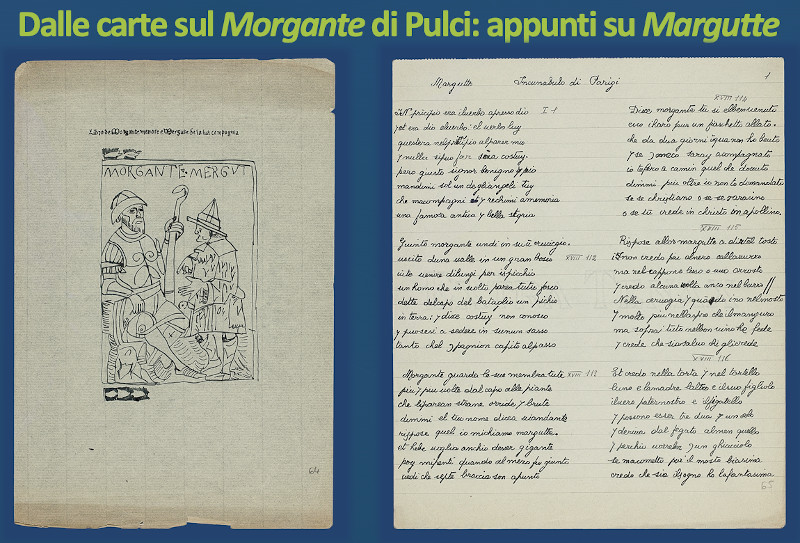 Dalle carte sul Morgante di Pulci: appunti su Margutte
Libro de Morgante menore e Mergute de la lur compagnia
MORGANTE E MERGUT
64
Margutte Incunabulo di Parigi
1
I-1
IN pricipio era iluerbo apresso dio
et era dio eluerbo: el uerbo luy
questera nelprincipio alparer mio
y nulla sipuo far sëza costuy.
pero giusto signor benigno y pio
mandimi sol un degliangele tuy
che macompagni et y rechimi amemoria
una famosa antica y bella storia
Giunto morgante undi in su ũ crucigio.
XVIII 112
uscito duna ualle in un gran bosco
uide uenire dilungi per ispichio
un homo che in uolto parea tuto fosco
dette delcapo del bataglio un pichio
in terra: y disse costuy non conosco
y puosesi a sedere in sunun sasso
tanto chel
capito alpasso
XVIII 113
Morgante guarda le sue membra tute
piu y piu uolte dal capo alle piante
che lipareano strane orride y brute
dimmi el tuo nome dicea uiandante
rispose quel io michiamo margutte.
et hebi uoglia anchio desser gigante
poy mipenti quando al mezo fu giunto
uedi che septe braccia son apunto
XVIII 114
Disse morgante tu si elbenuenuto
ecco chauro pur un fiaschetto allato.
che da due giorni iqua non ho beuto
y se
saray acompagnato
io tefaro a camin quel che deuuto
dimmi piu oltre io non to domandato
se se christiano o se se saracino
o se tu crede in christo o in apollino.
XVIII 115
Rispose allor margutte a dirtel tosto
i non credo piu alnero callazurro
ma nel cappone lesso o uno arrosto
y credo alcuna uolta anco nel burro //
Nella ceruogia y quando ino nelmosto
y molto piu nellaspro che ilmangurro
ma sopra tuto nelbon uino ho fede
y crede che siasaluo chi glicrede
XVIII 116
Et credo nella torta y nel tortello
luno e lamadre laltro e ilsuo figliolo
iluero paternostro e ilfigatello
y possono esser tre dua y un solo
y deriua dal fegato almen quello
y perchio uorebe
un ghiacciolo
se macometto poi il mosto biasima
credo che sia ilsogno ho lafantasima
65